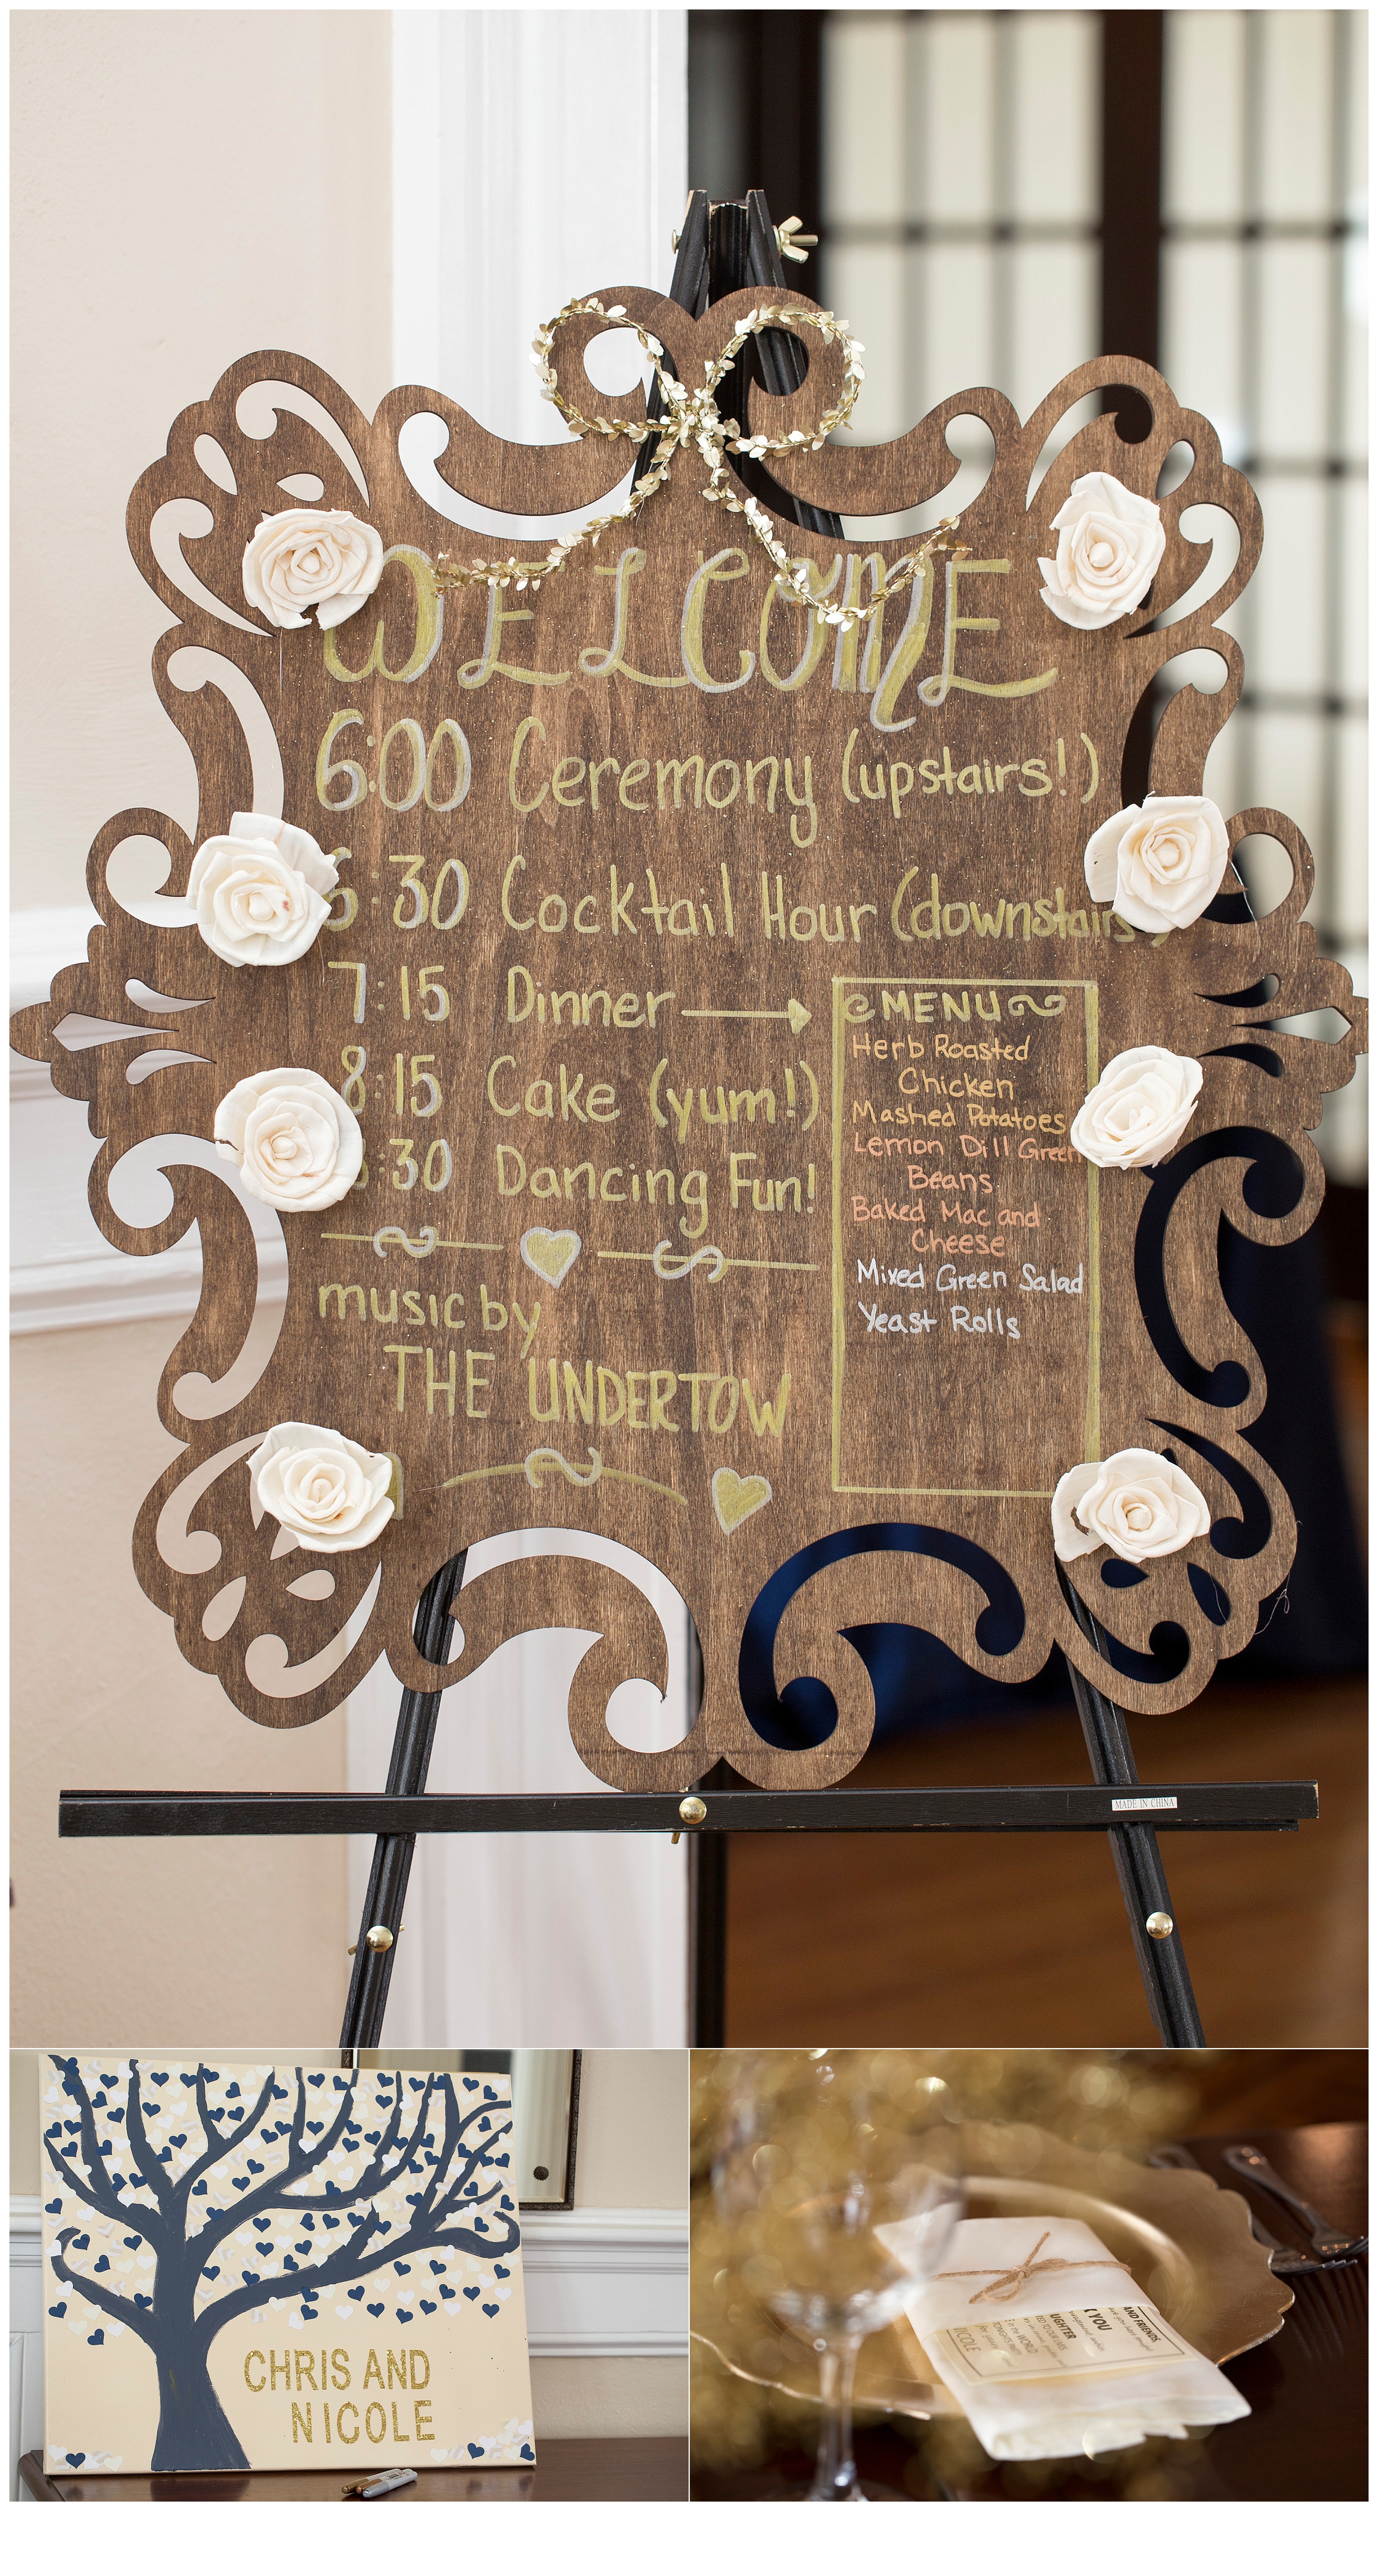 WELCOME
6:00 Ceremony (upstairs!)
6:30 Cocktail Hour (downstairs)
7:15 Dinner →
8:15 Cake (yum!)
:30 Dancing Fun!
music by
THE UNDERTOW
MENU
Herb Roasted
Chicken
Mashed Potatoes
Lemon Dill Green
Beans
Baked Mac and
Cheese
Mixed Green Salad
Yeast Rolls
MADE IN CHINA
CHRIS AND
NICOLE
AND FRIENDS,
YOU
WORLD